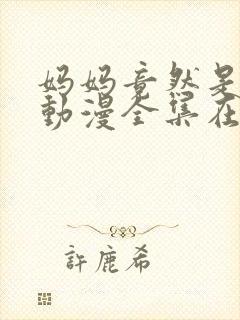 妈妈竟然是
動漫全集在
許鹿希